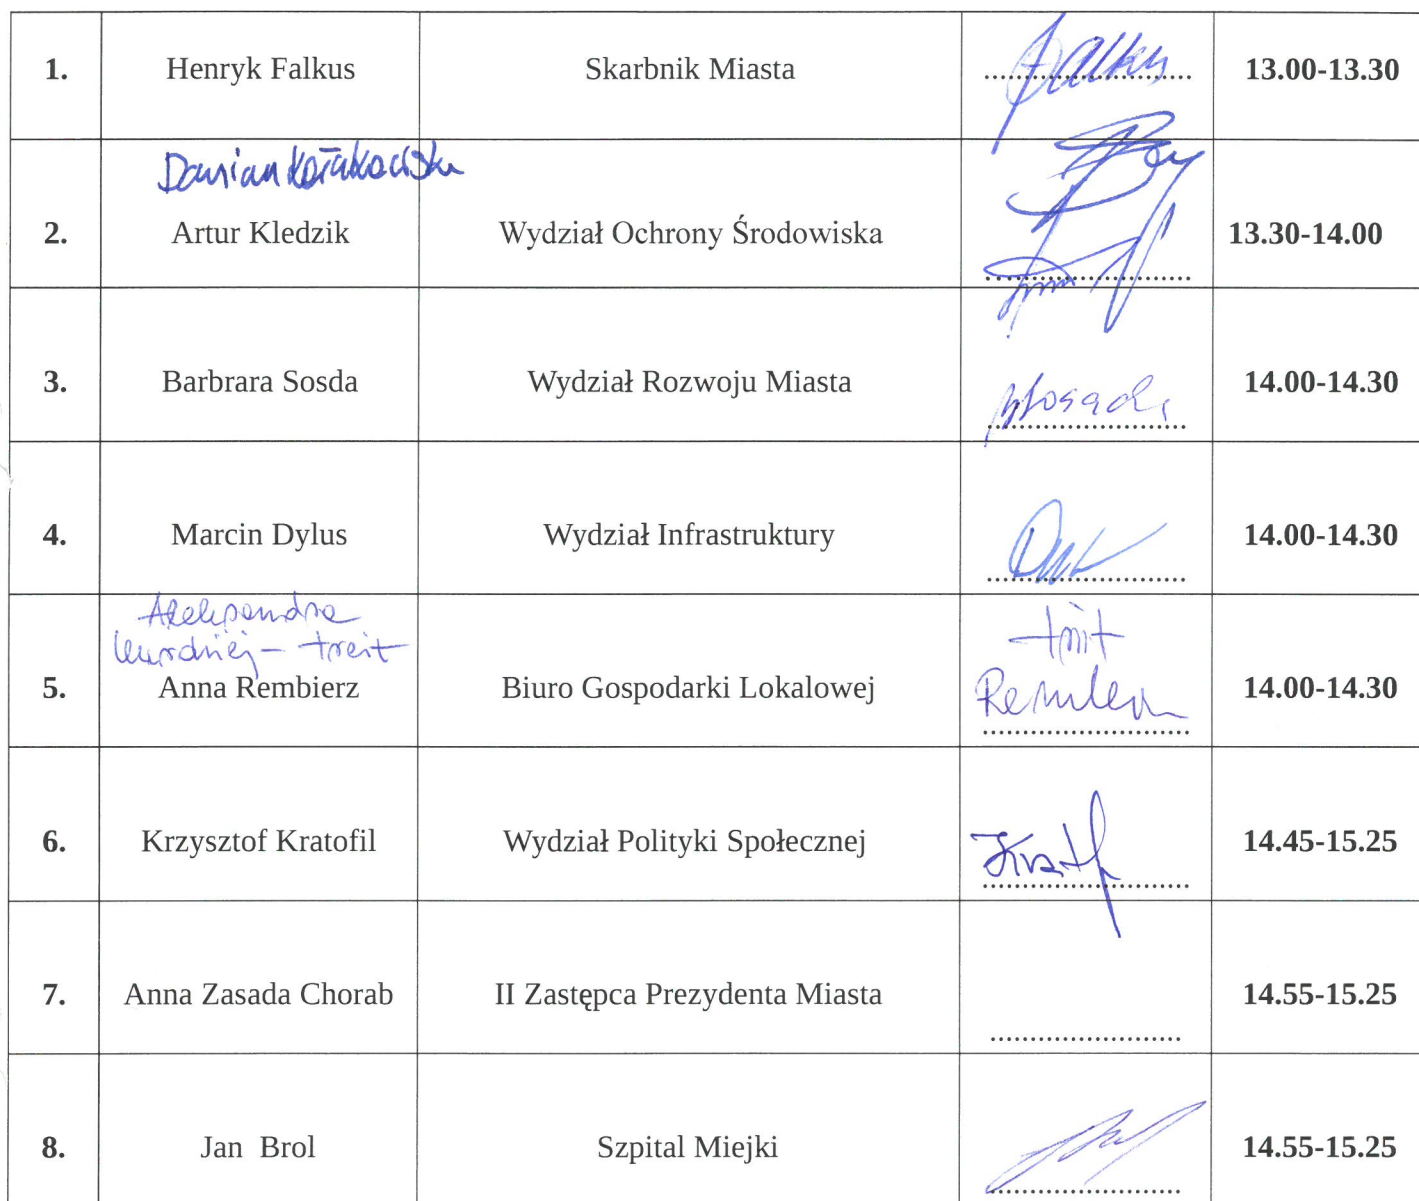 1. Henryk Falkus Skarbnik Miasta Falkus 13.00-13.30
Damian
2. Artur Kledzik Wydział Ochrony Środowiska 13.30-14.00
3. Barbrara Sosda Wydział Rozwoju Miasta 14.00-14.30
4. Marcin Dylus Wydział Infrastruktury 14.00-14.30
Aleksandra
- Treit
5. Anna Rembierz Biuro Gospodarki Lokalowej 14.00-14.30
6. Krzysztof Kratofil Wydział Polityki Społecznej 14.45-15.25
7. Anna Zasada Chorab II Zastępca Prezydenta Miasta 14.55-15.25
8. Jan Brol Szpital Miejki 14.55-15.25